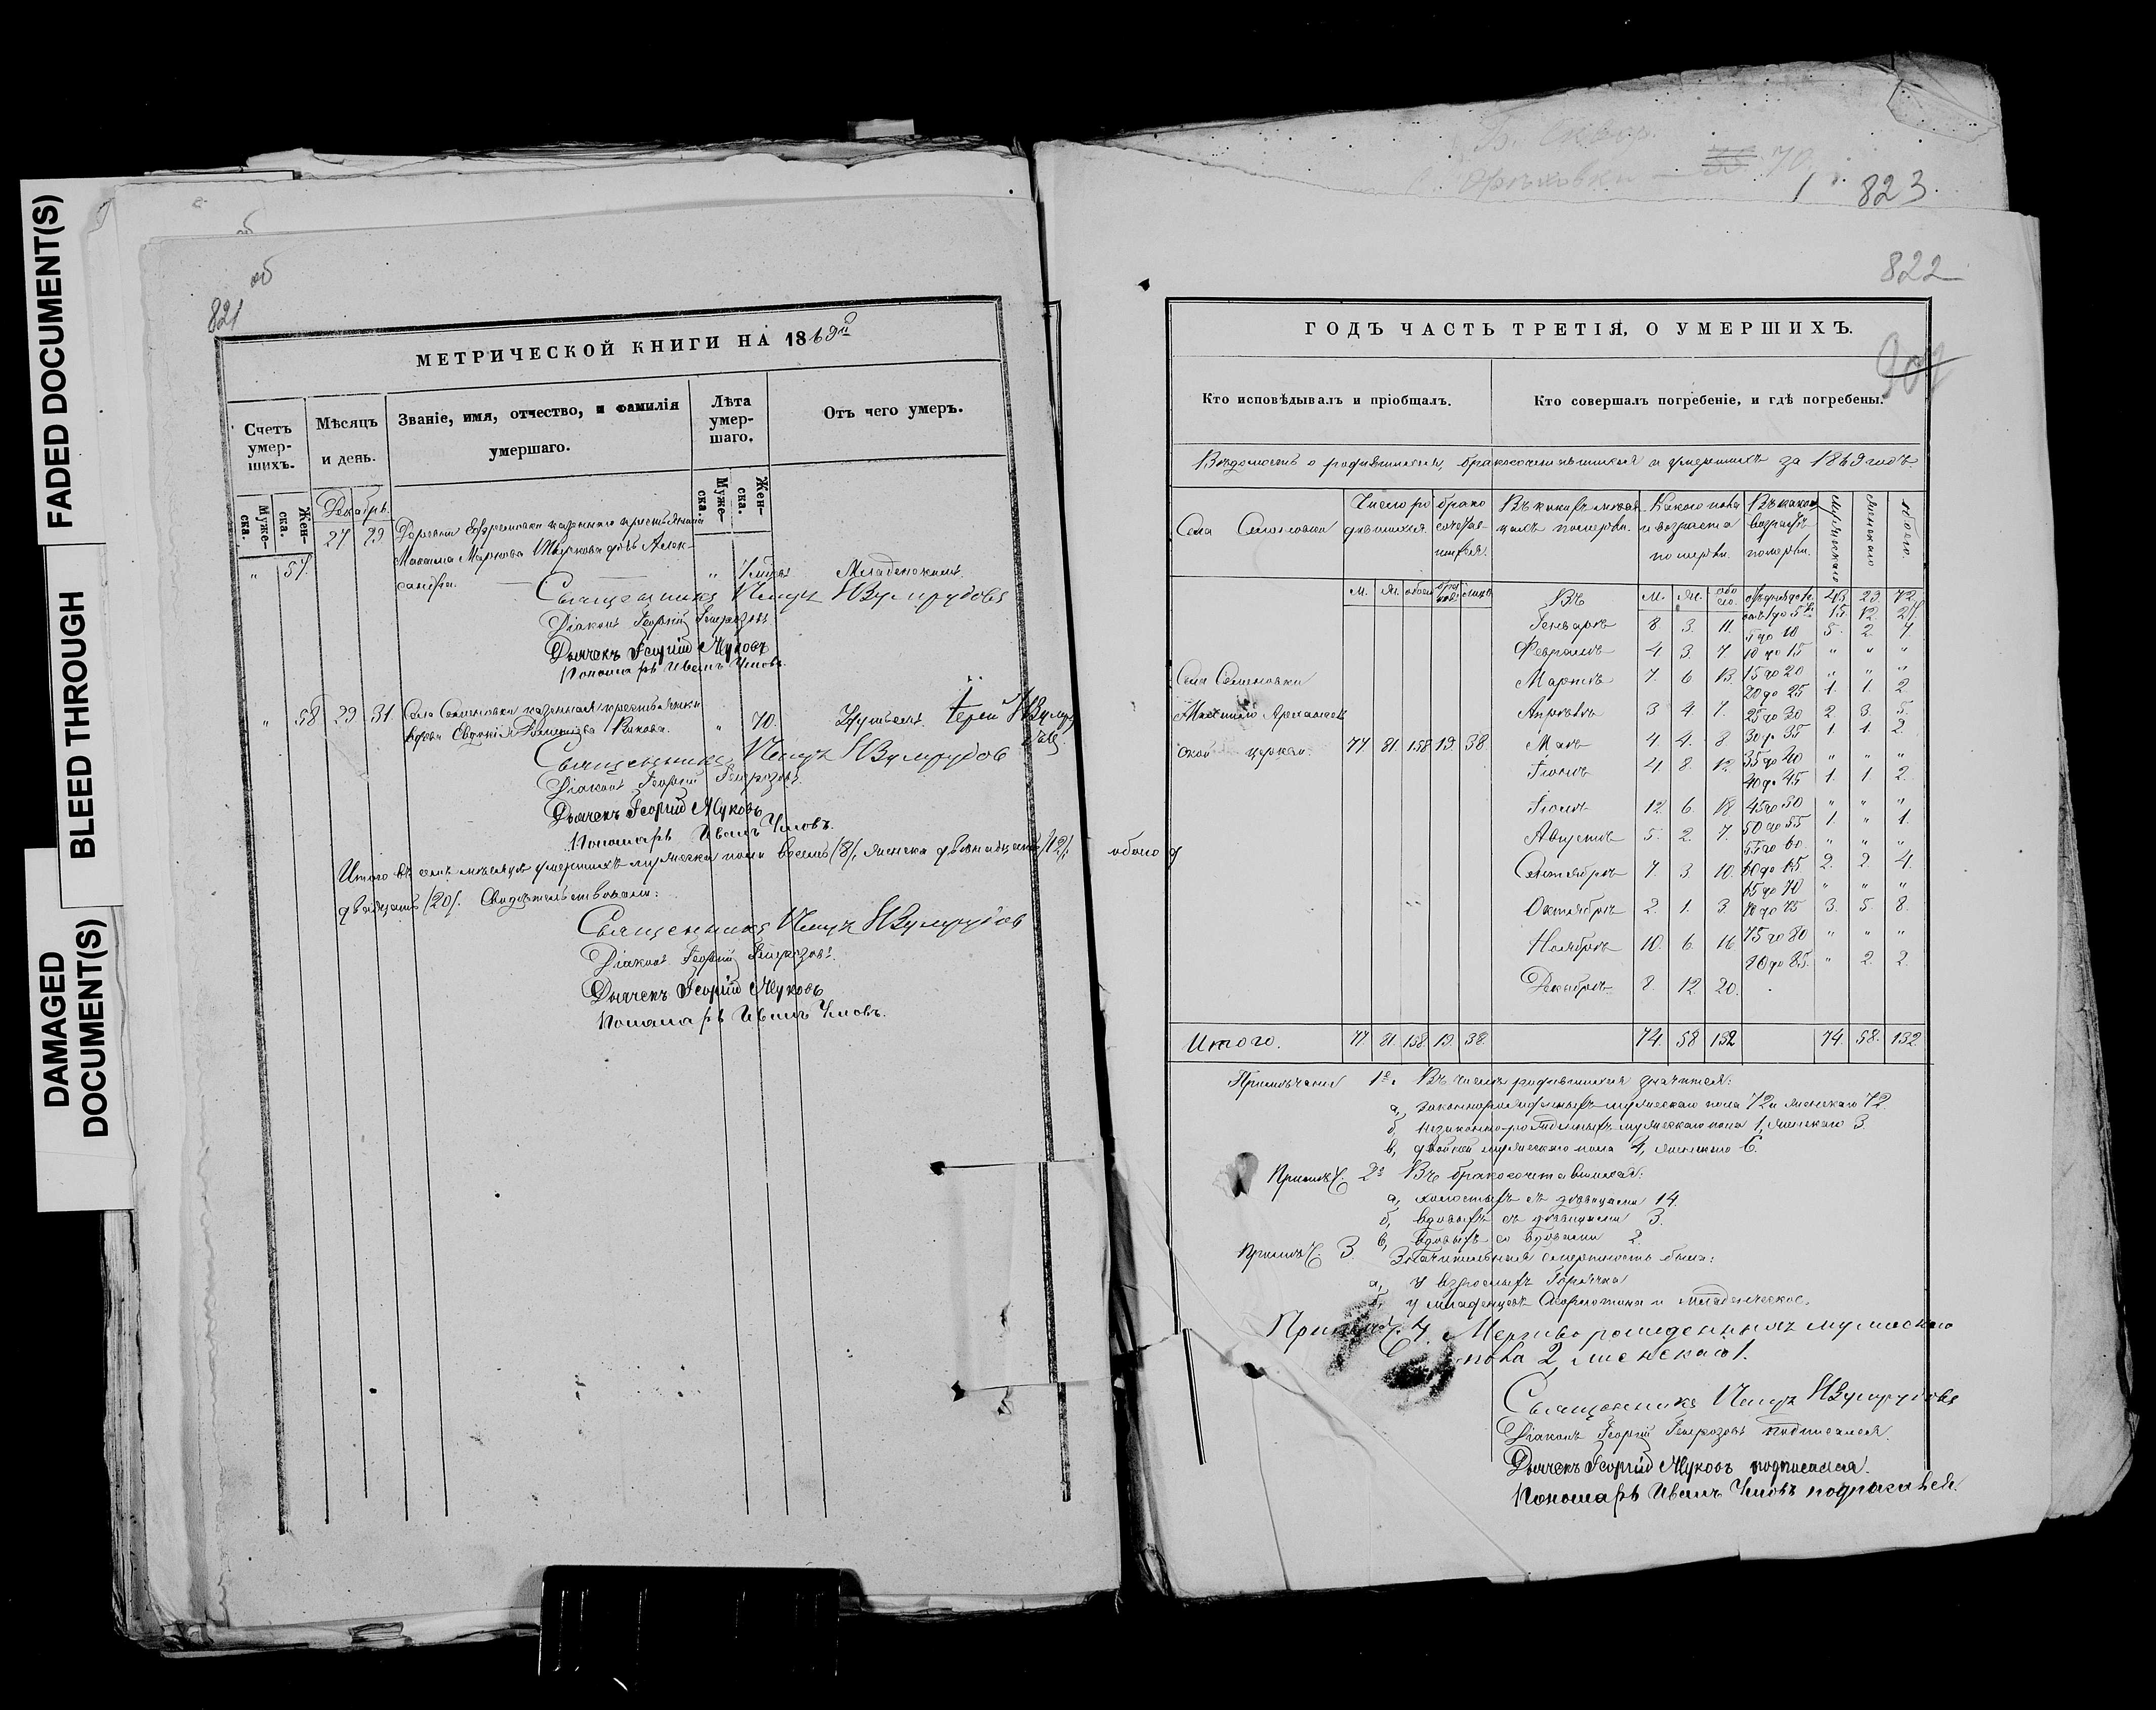 FADED DOCUMENT(S)
BLEED THROUGH
DAMAGED
DOCUMENT(S)
об
821
МЕТРИЧЕСКОЙ КНИГИ НА 1869й
Счетъ умер-шихъ.
Мѣсяцъ и день.
Званіе, имя, отчество, и фамилія умершаго.
Лѣта умер-шаго.
Отъ чего умеръ.
Муже-ска.
Жен-ска.
Муже-ска.
Жен-ска.
Декабрь.
„ 57. 27 29 Деревни Ефремовки казеннаго крестьянина
Максима Маркова дочь Алек-
сандра. „ Младенскимъ.
Священникъ Петръ Изумрудовъ
Діаконъ Георгій
Дьячекъ Георгій Жуковъ
Пономарь Иванъ Умовъ.
„ 58 29 31. Села Семеновки казенная крестьянка
вдова Евдокія „ 70.
Священникъ Петръ Изумрудовъ
Діаконъ Георгій
Дьячекъ Георгій Жуковъ
Пономарь Иванъ Умовъ.
Итого въ семъ мѣсяцѣ умершихъ мужеска пола восемь /8/, женска двѣнадцать /12/, обоего
двадцать /20/. Свидѣтельствовали:
Священникъ Петръ Изумрудовъ
Діаконъ Георгій
Дьячекъ Георгій Жуковъ
Пономарь Иванъ Умовъ.
70
823.
822
907
ГОДЪ ЧАСТЬ ТРЕТІЯ, О УМЕРШИХЪ.
Кто исповѣдывалъ и пріобщалъ.
Кто совершалъ погребеніе, и гдѣ погребены.
Вѣдомость о родившихся, бракосочетавшихся и умершихъ за 1869 годъ
Села Семеновки
Число ро дившихся.
брако сочетав-шихся.
Въ какихъ мѣся-цахъ померли.
Какого пола и возраста померли.
Въ какомъ возрастѣ померли.
Мужескаго
Женскаго
Обоего.
М. Ж. обоего
Въ М. Ж. обо его. 43 29 72.
Генварѣ 8 3. 11. 1 до 5 15. 12. 27.
5 до 10 5. 2. 7.
Февралѣ 4 3. 7 10 до 15 „ „ „
Села Семеновки Мартѣ 7. 6 13. 15 до 20 „ „ „
20 до 25 1. 1. 2
Михаило Архангель Апрѣлѣ 3 4. 7. 25 до 30 2 3. 5.
30 до 35 1. 1. 2
ской церкви 77 81. 158 19. 38. Маѣ 4. 4. 8 35 до 40 „ „ „
Іюнѣ 4. 8. 12 40 до 45 1. 1 2.
Іюлѣ 12 6. 18 45 до 50 „ „ „
Августѣ 5. 2. 7. 50 до 55 1. „ 1.
55 до 60. „ „ „
Сентябрѣ 7. 3. 10. 60 до 65 2. 2. 4.
65 до 70 „ „ „
Октябрѣ 2. 1. 3. 70 до 75 3. 5. 8.
Ноябрѣ 10. 6. 16 75 до 80 „ „ „
80 до 85. „ 2. 2.
Декабрѣ 8. 12 20.
Итого. 77 81. 158. 19. 38. 74. 58 132 74. 58. 132.
Примѣчаніе 1е. Въ числѣ родившихся значится:
а, законнорожденныхъ мужескаго пола 72 и женскаго 72
б, незаконно-рожденныхъ мужескаго пола 1, женскаго 3.
в, двойни мужескаго пола 4, женскаго 6.
Примѣч. 2е Въ бракосочетавшихся:
а, холостыхъ съ дѣвицами 14.
б, вдовыхъ съ дѣвицами 3.
в, вдовыхъ со вдовами 2.
Примѣч. 3. Значительная смертность была:
а, У взрослыхъ Горячка
б, у младенцевъ и младенческое.
Примѣч. 4. Мертворожденныхъ мужескаго
пола 2, женскаго 1.
Священникъ Петръ Изумрудовъ
Діаконъ Георгій подписался.
Дьячекъ Георгій Жуковъ подписался.
Пономарь Иванъ Умовъ подписался.